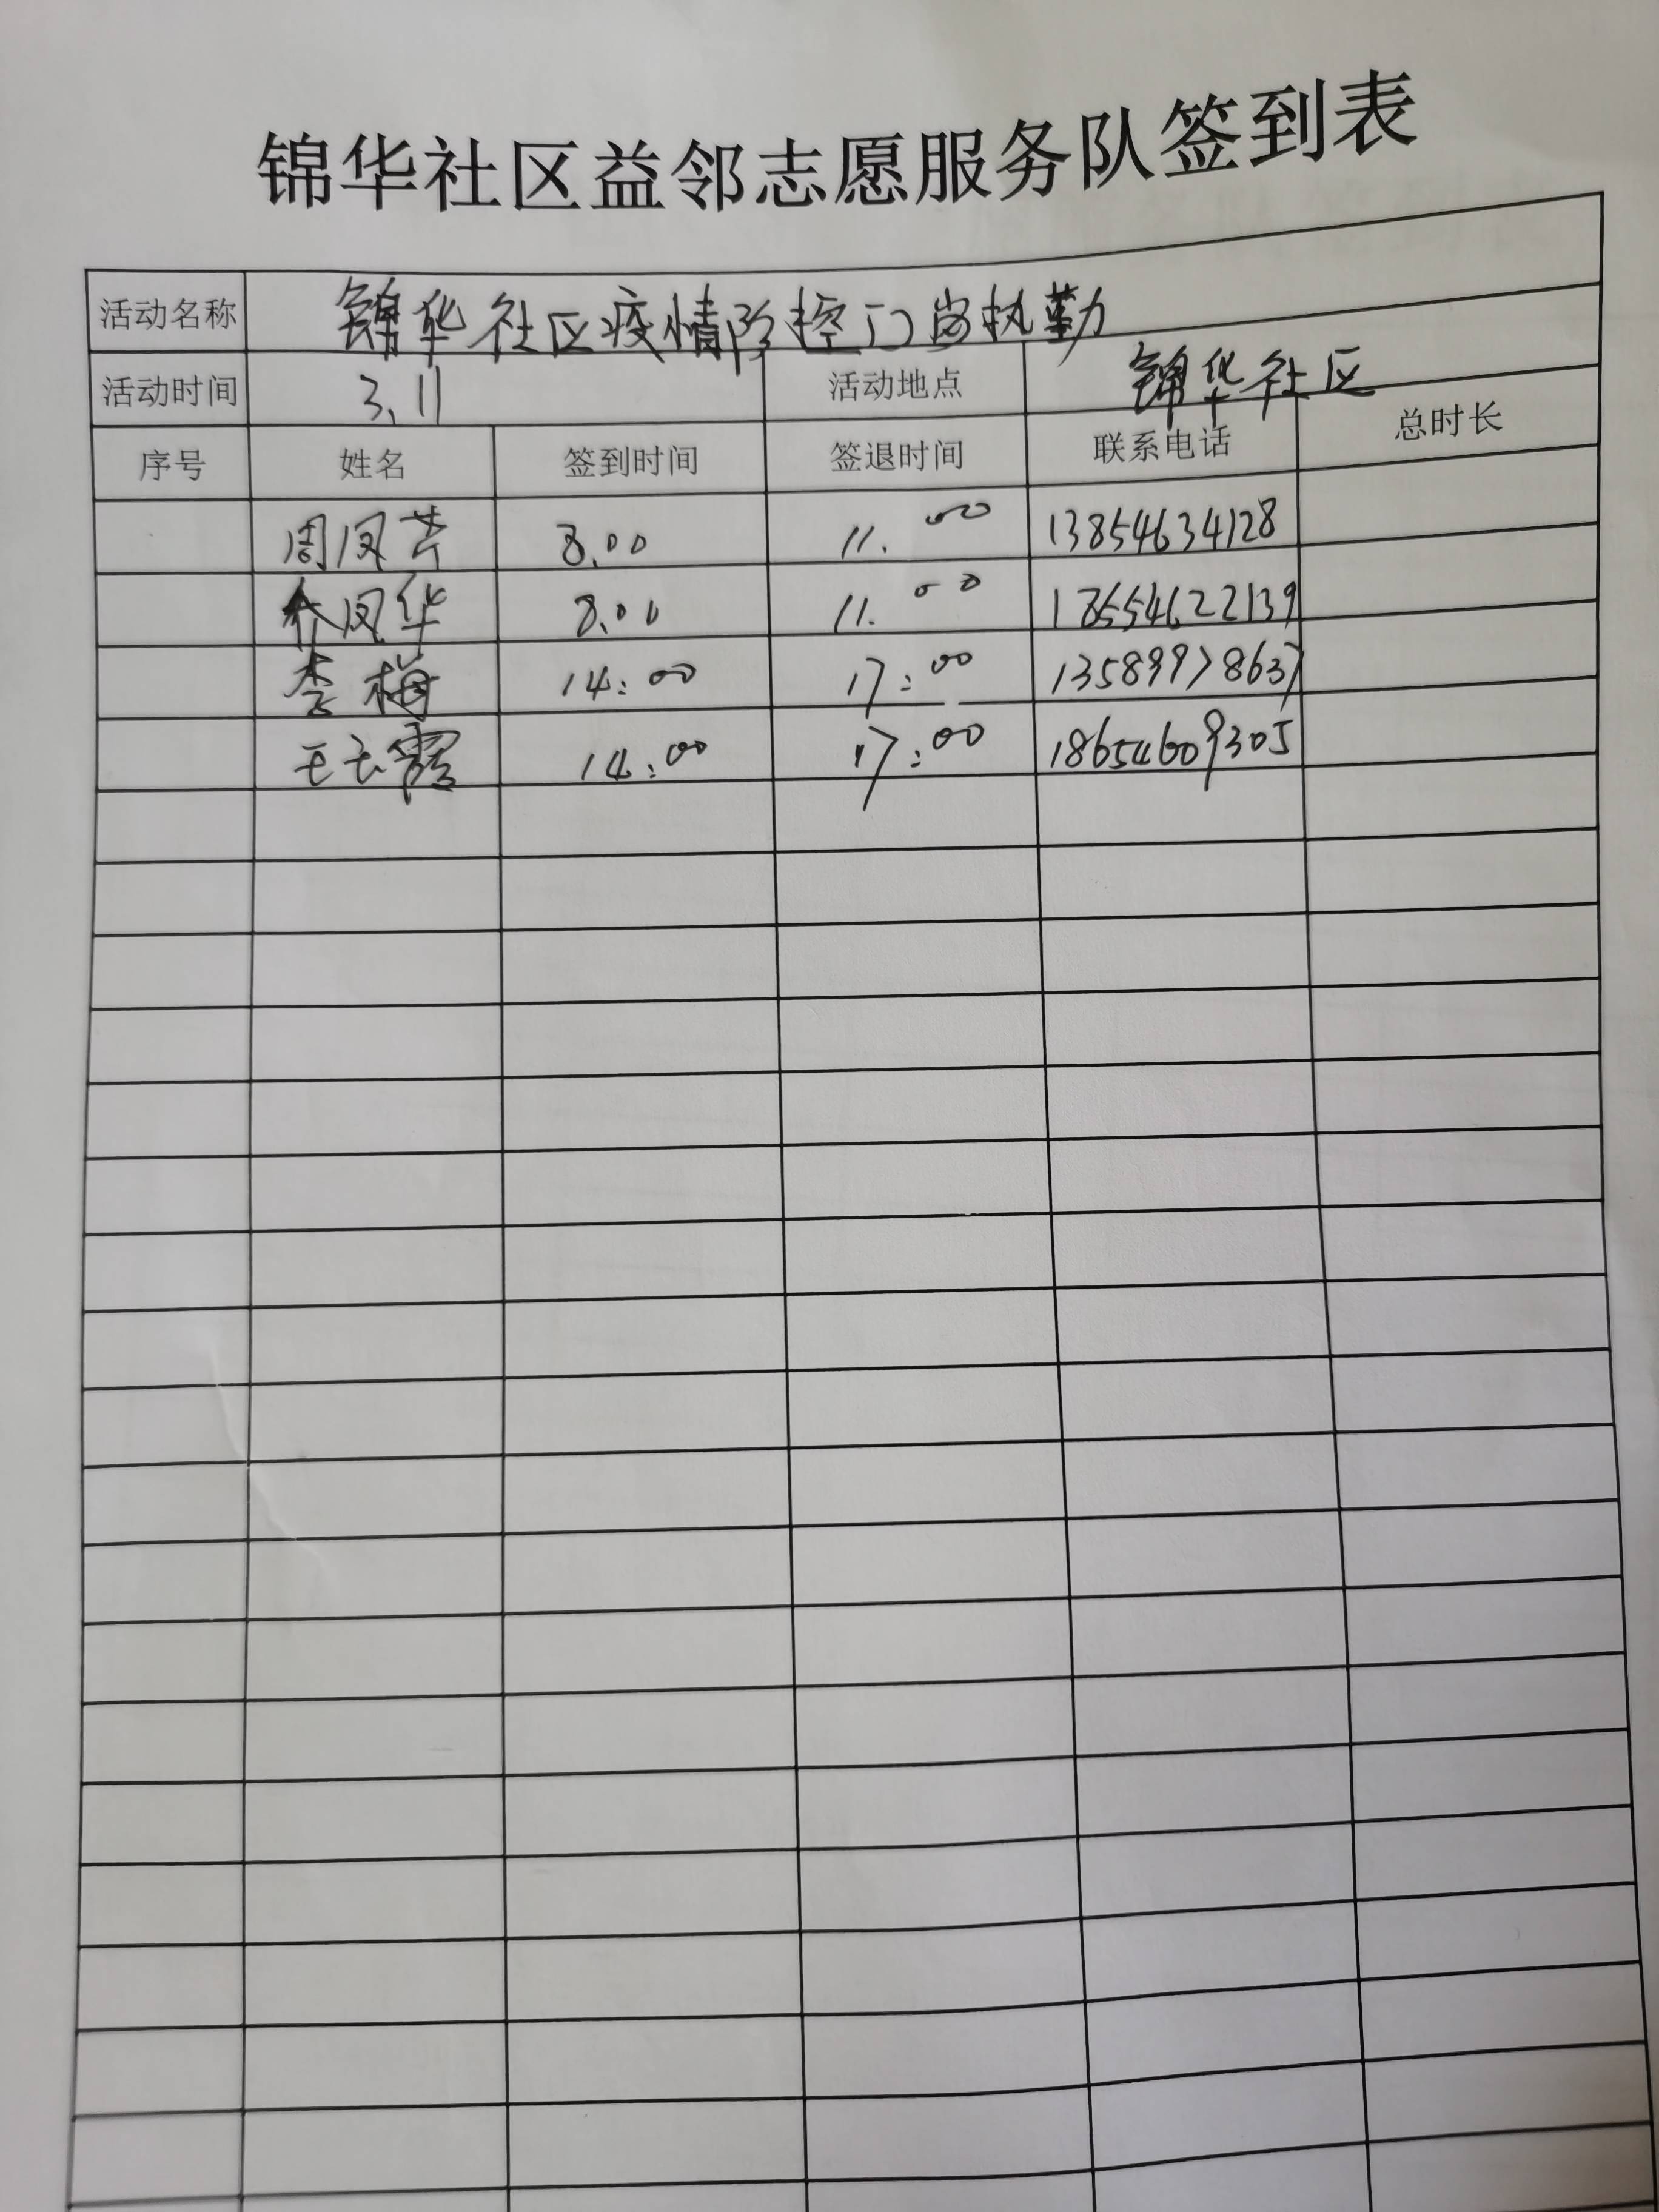 锦华社区益邻志愿服务队签到表
活动名称 锦华社区疫情防控门岗执勤
活动时间 3.11 活动地点 锦华社区
序号 姓名 签到时间 签退时间 联系电话 总时长
周凤芹 8.00 11.00 13854634128
凤华 8.00 11.00 18654622139
李梅 14:00 17:00 13589978637
王玉霞 14:00 17:00 18654609305